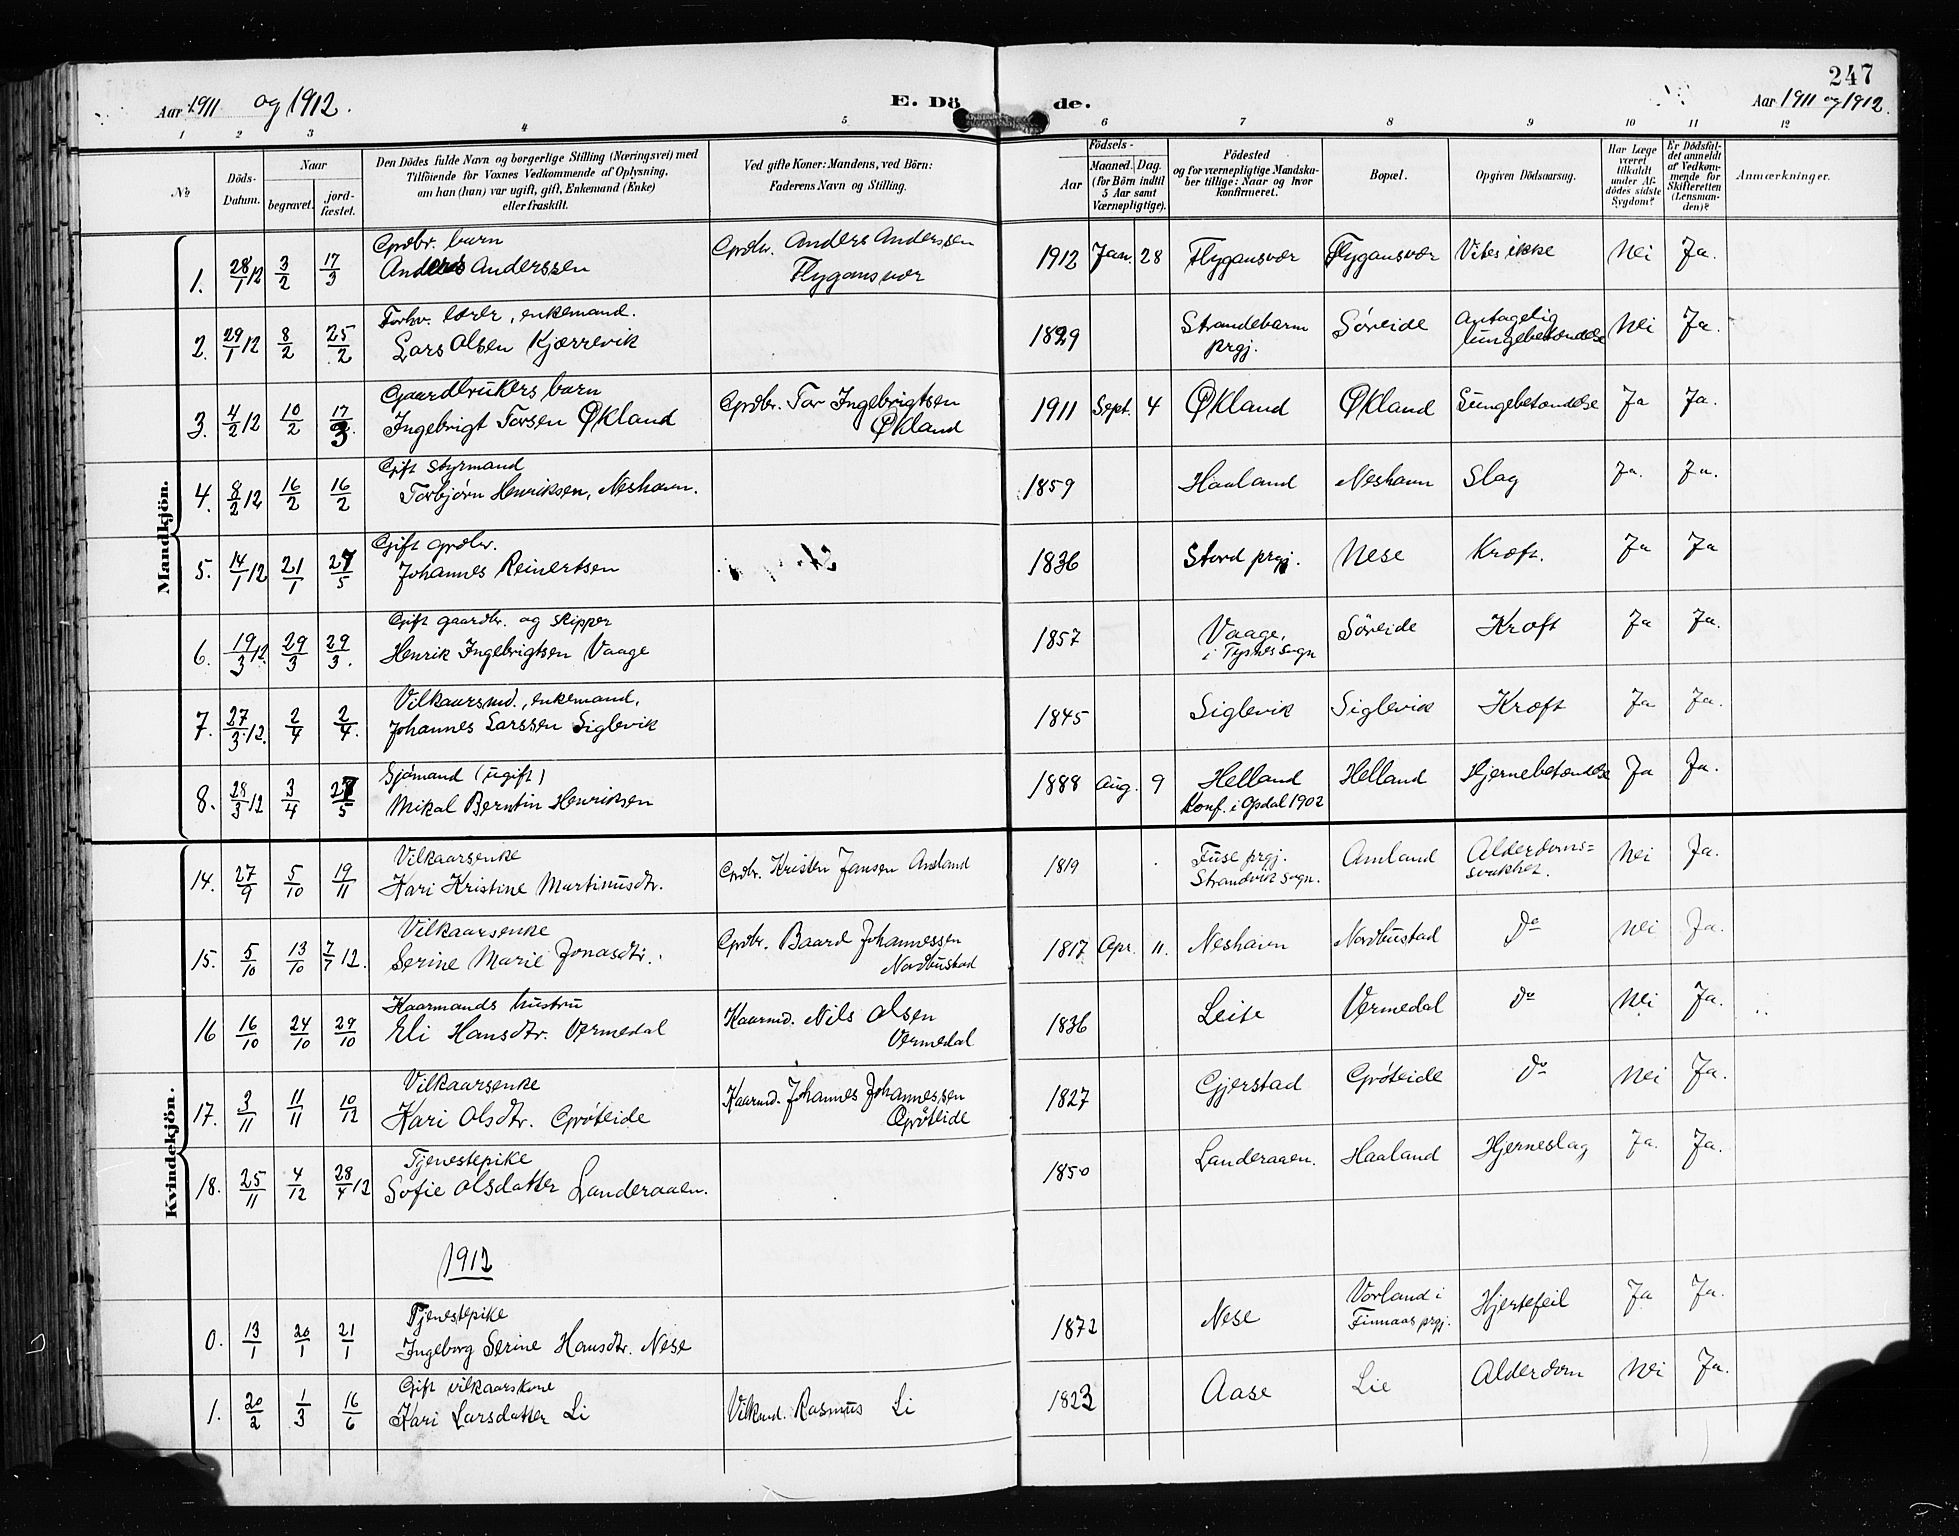 247
Aar 1911 og 1912.
E. Dö de.
Aar 1911 og 1912.
1 2 3 4 5 6 7 8 9 10 11 12
No
Döds-Datum.
Naar
begravet.
jord-fæstet.
Den Dödes fulde Navn og borgerlige Stilling (Næringsvei) med
Tilföiende for Voxnes Vedkommende af Oplysning,
om han (hun) var ugift, gift, Enkemand (Enke)
eller fraskilt.
Ved gifte Koner: Mandens, ved Börn:
Faderens Navn og Stilling.
Födsels-
Aar
Maaned. Dag.
(for Börn indtil
5 Aar samt
Værnepligtige).
Födested
og for værnepligtige Mandska-
ber tillige: Naar og hvor
konfirmeret.
Bopæl.
Opgiven Dödsaarsag.
Har Læge
været
tilkaldt
under Af-
dödes sidste
Sygdom?
Er Dödsfal-
det anmeldt
af Vedkom-
mende for
Skifteretten
(Lensman-
den)?
Anmærkninger.
Mandkjön.
1. 28/1 12 3/2 17/3 Grdbr. barn
Anders Anderssen
Grdbr. Anders Anderssen
Flygansvær
1912 Jan. 28 Flygansvær Flygansvær Vites ikke Nei Ja.
2. 29/1 12 8/2 25/2 Forhv. lærer, enkemand.
Lars Olsen Kjærrevik
1829 Strandebarm
prgj.
Søreide Antagelig
lungebetændelse
Nei Ja.
3. 4/2 12 10/2 17/3. Gaardbrukers barn
Ingebrigt Torsen Økland
Grdbr. Tor Ingebrigtsen
Økland
1911 Sept. 4 Økland Økland Lungebetændelse Ja Ja.
4. 8/2 12 16/2 16/2 Gift styrmand
Torbjørn Henriksen, Neshavn.
1859 Haaland Neshavn Slag Ja. Ja.
5. 14/1 12 21/1 27/5 Gift grdbr.
Johannes Reinertsen
1836 Stord prgj. Nese Kræft. Ja Ja
6. 19/3 12. 29/3 29/3. Gift gaardbr. og skipper
Henrik Ingebrigtsen Vaage
1857 Vaage,
i Tysnes sogn
Søreide Kræft Ja Ja.
7. 27/3 12. 2/4 2/4. Vilkaarsmd., enkemand,
Johannes Larssen Siglevik
1845 Siglevik Siglevik Kræft Ja Ja.
8. 28/3 12 3/4 27/5 Sjömand (ugift)
Mikal Berntin Henriksen
1888 Aug. 9 Helland
Konf. i Opdal 1902
Helland Hjernebetændelse Ja Ja.
Kvindekjön.
14. 27/9 5/10 19/11 Vilkaarsenke
Kari Kristine Martinusdtr.
Grdbr. Kristen Jansen Amland
1819 Fuse prgj.
Strandvik sogn.
Amland Alderdoms=
svakhet.
Nei Ja.
15. 5/10 13/10 7/7 12. Vilkaarsenke
Serine Marie Jonasdtr.
Grdbr. Baard Johannessen
Nordbustad
1817 Apr. 11. Neshavn Nordbustad Do Nei Ja.
16 16/10 24/10 29/10 Kaarmands hustru
Eli Hansdtr. Vermedal
Kaarmd. Nils Olsen
Vermedal
1836 Leite Vermedal Do Nei Ja.
17. 3/11 11/11 10/12 Vilkaarsenke
Kari Olsdtr. Gröteide
Kaarmd. Johannes Johannessen
Gröteide
1827 Gjerstad Gröteide Do Nei Ja.
18. 25/11 4/12 28/4 12 Tjenestepike
Sofie Olsdatter Landeraaen.
1850 Landeraaen. Haaland Hjerneslag Ja. Ja.
1912
0. 13/1 20/1 21/1 Tjenestepike
Ingeborg Serine Hansdtr. Nese
1872 Nese Vorland i
Finnaas prgj.
Hjertefeil Ja Ja.
1. 20/2 1/3 16/6 Gift vilkaarskone
Kari Larsdatter Li
Vilkmd. Rasmus Li
1823 Aase Lie Alderdom Nei Ja.